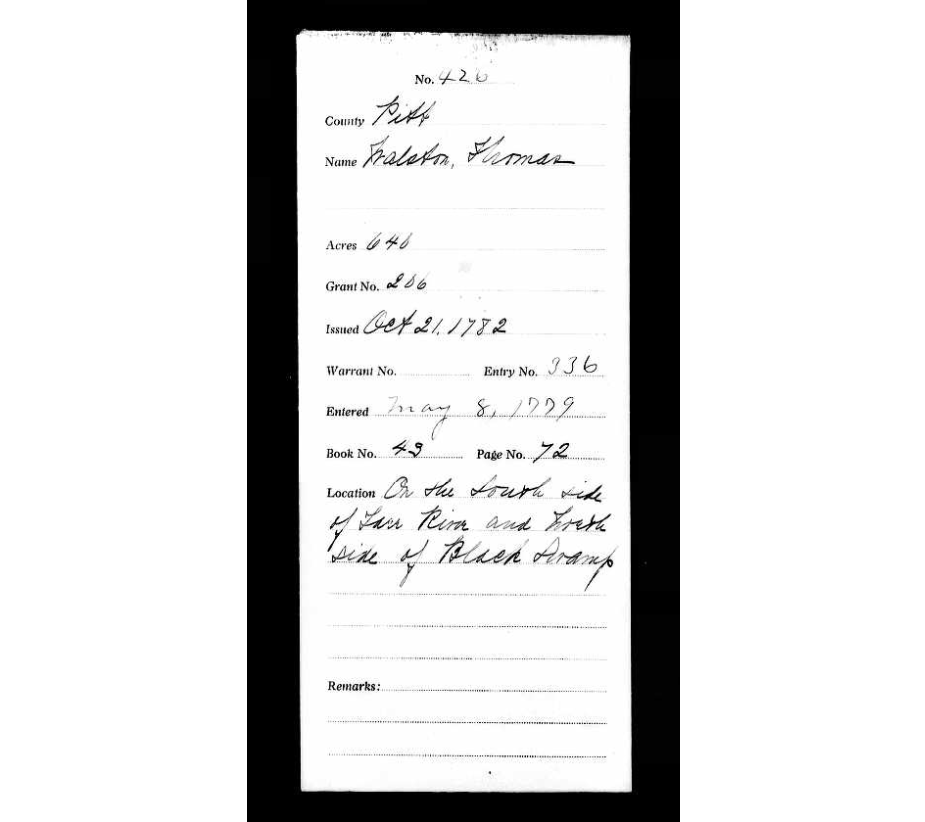 No. 426
County Pitt
Name Walston, Thomas
Acres 640
Grant No. 206
Issued Oct 21, 1782
Warrant No. Entry No. 336
Entered May 8, 1779
Book No. 43 Page No. 72
Location On the South side
of Tarr River and North
side of Black Swamp
Remarks: